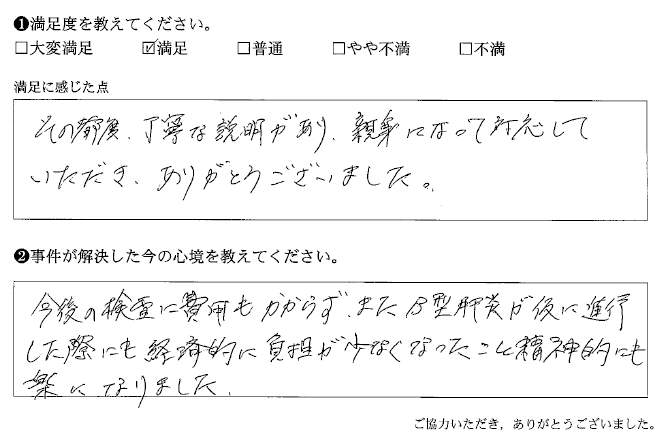 ❶満足度を教えてください。
□大変満足 ☑満足 □普通 □やや不満 □不満
満足に感じた点
その都度、丁寧な説明があり、親身になって対応して
いただき、ありがとうございました。
❷事件が解決した今の心境を教えてください。
今後の検査に費用もかからず、またB型肝炎が仮に進行
した際にも経済的に負担が少なくなったこと精神的にも
楽になりました。
ご協力いただき，ありがとうございました。